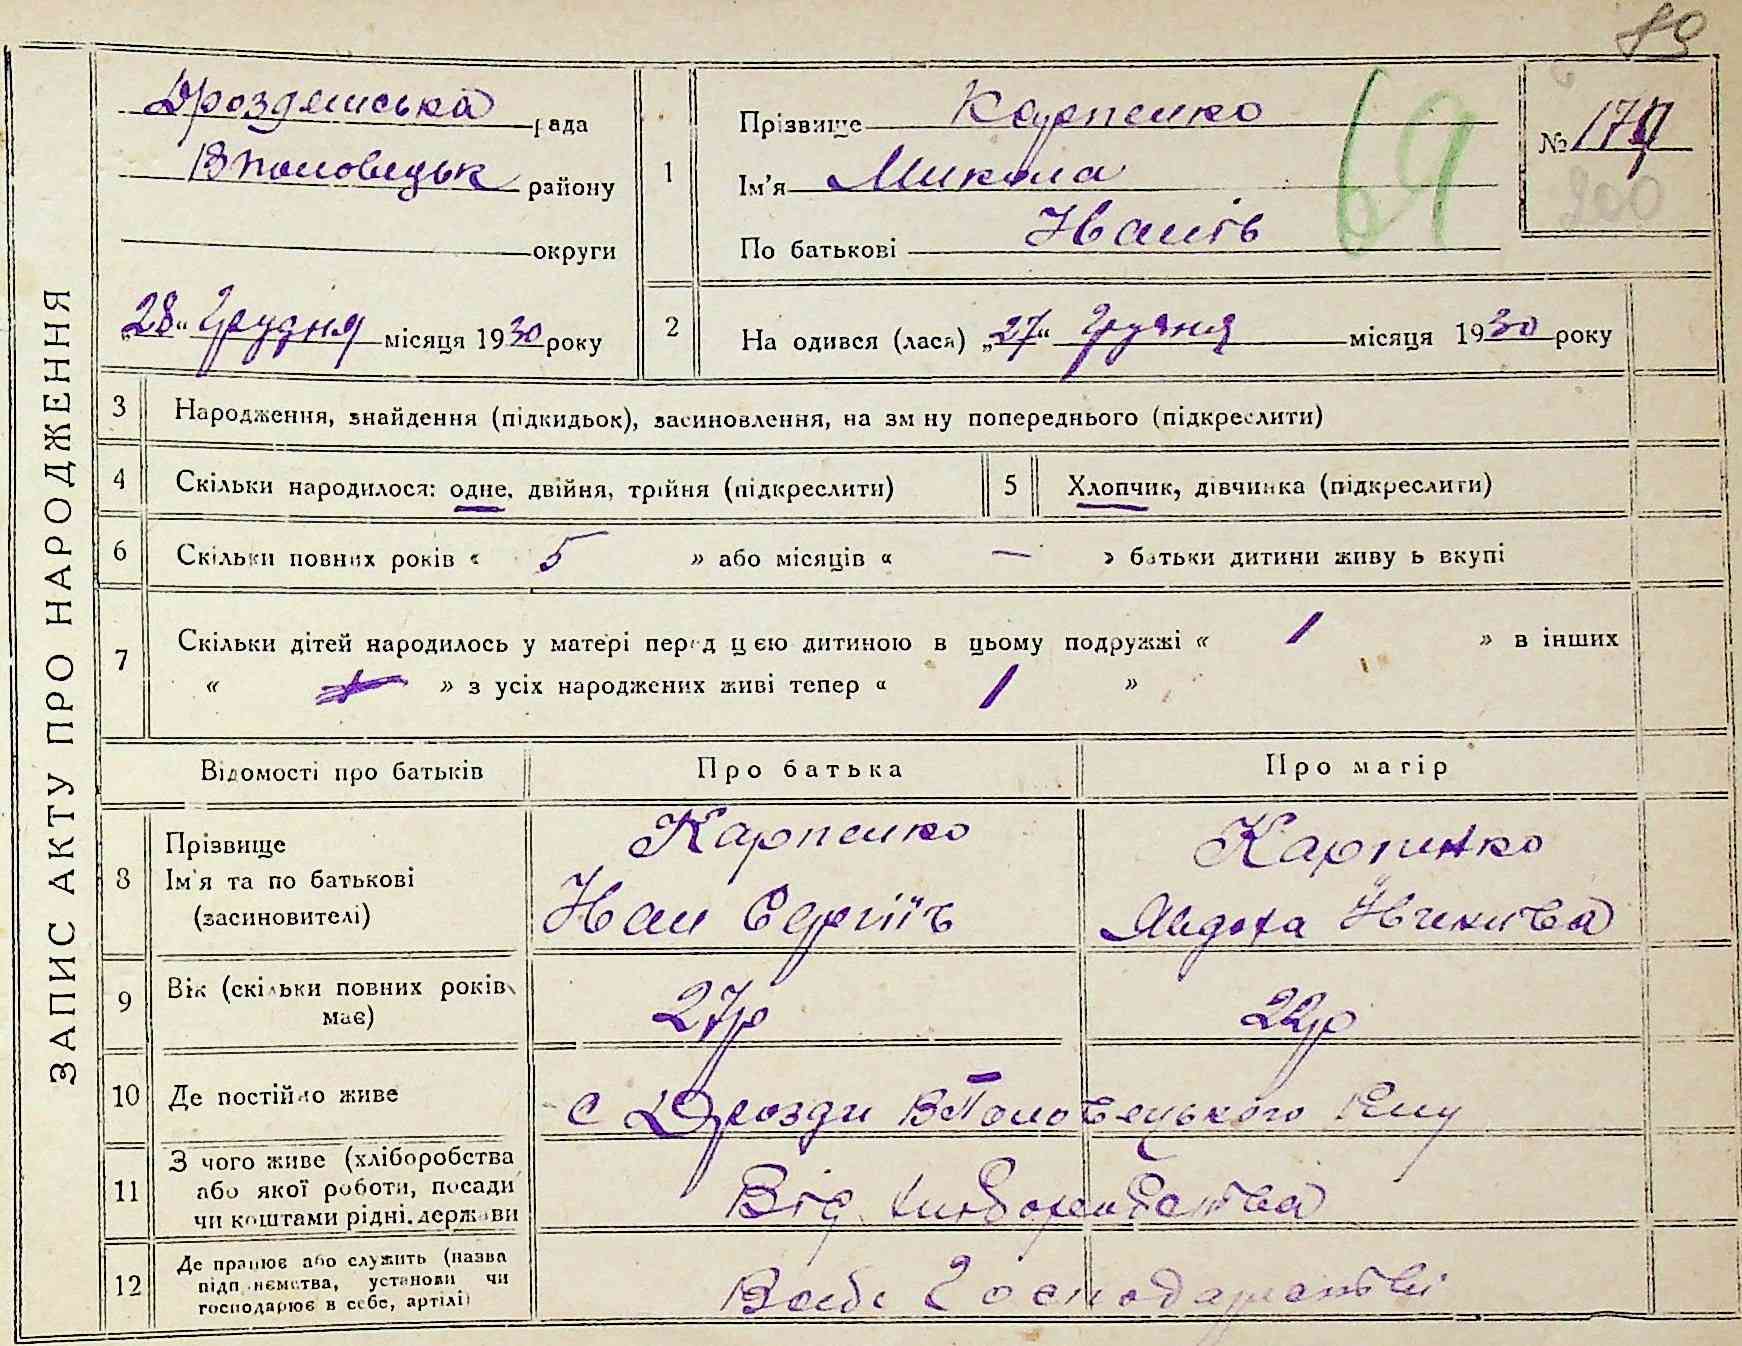 89
ЗАПИС АКТУ ПРО НАРОДЖЕННЯ
Дроздянська рада
ВПоловецьк району
округи
„28“ Грудня місяця 1930 року
1
Прізвище Карпенко
Ім'я Микола
По батькові Іванів
69
№ 179
200
2
На одився (лася) „27“ Грудня місяця 1930 року
3 Народження, знайдення (підкидьок), засиновлення, на зм ну попереднього (підкреслити)
4 Скільки народилося: одне, двійня, трійня (підкреслити)
5 Хлопчик, дівчинка (підкреслити)
6 Скільки повних років « 5 » або місяців « — » батьки дитини живу ь вкупі
7 Скільки дітей народилось у матері перед цією дитиною в цьому подружжі « 1 » в інших
« » з усіх народжених живі тепер « 1 »
Відомості про батьків
Про батька
Про матір
8
Прізвище
Ім'я та по батькові
(засиновителі)
Карпенко
Иван Сергіїв
Карпинко
Явдоха
9
Вік (скільки повних років
має)
27р
22р
10 Де постійно живе
с Дрозди ВПоловецького Рну
11
З чого живе (хліборобства
або якої роботи, посади
чи коштами рідні, держави
Від хліборобства
12
Де працює або служить (назва
підп иємства, установи чи
господарює в себе, артілі)
Господарстві